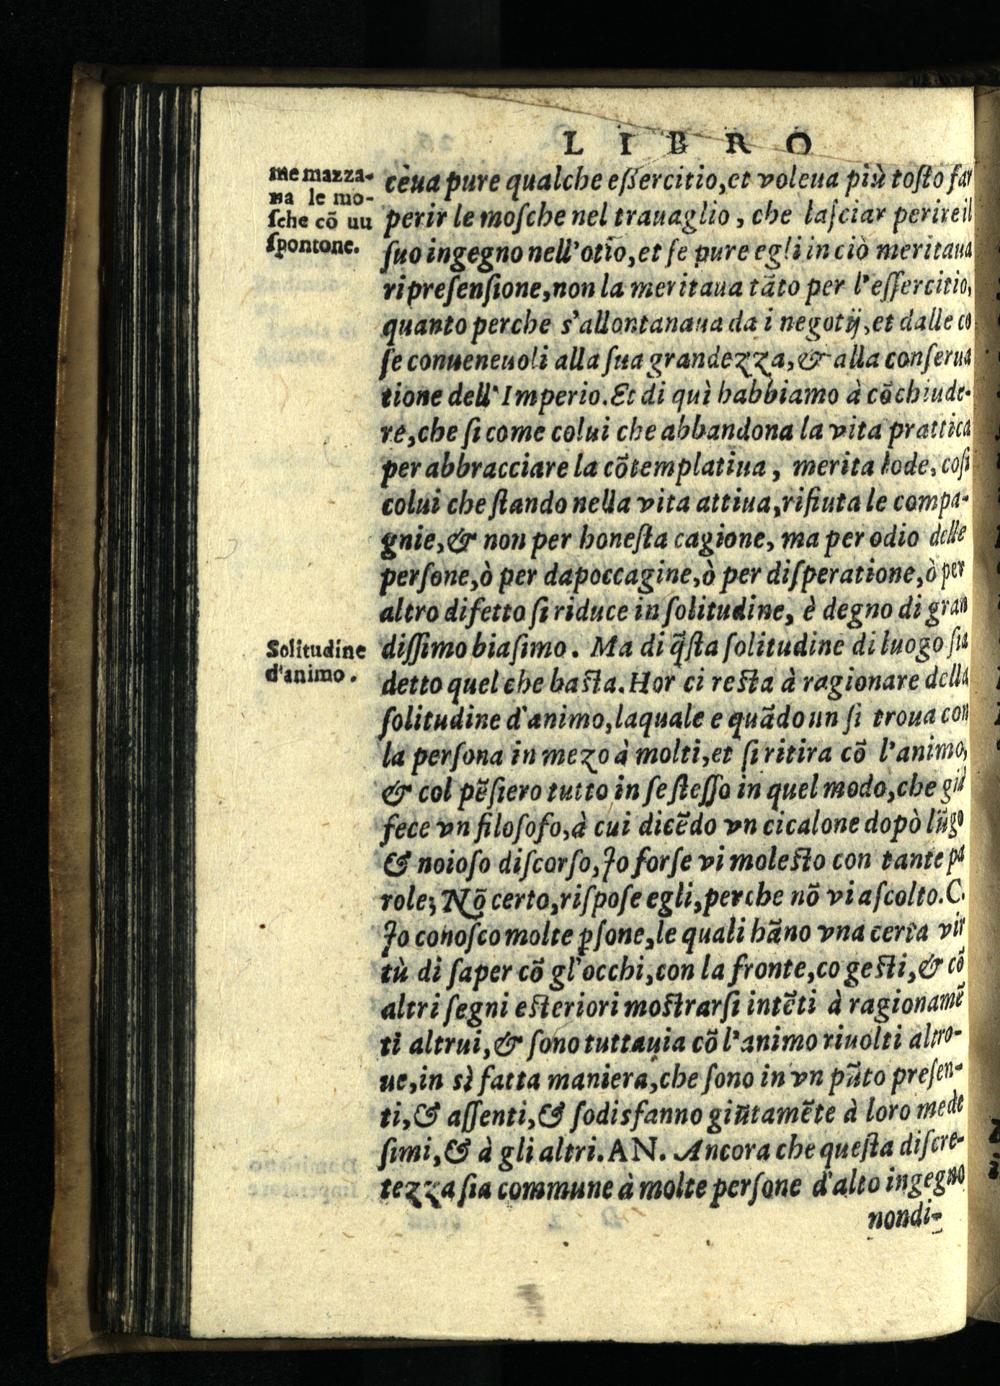 LIBRO
me mazza-
na le mo-
sche cõ uu
spontone.
cèua pure qualche eßercitio, et voleua più tosto far
perir le mosche nel trauaglio, che lasciar perire il
suo ingegno nell'otio, et se pure egli in ciò meritaua
riprensione, non la meritaua tãto per l'essercitio,
quanto perche s'allontanaua da i negotij, et dalle co
se conueneuoli alla sua grandezza, & alla conserua
tione dell'Imperio. Et di quì habbiamo à cõchiude-
re, che si come colui che abbandona la vita prattica
per abbracciare la cõtemplatiua, merita lode, cosi
colui che stando nella vita attiua, rifiuta le compa-
gnie, & non per honesta cagione, ma per odio delle
persone, ò per dapoccagine, ò per disperatione, ò per
altro difetto si riduce in solitudine, è degno di gran
Solitudine
d'animo.
dissimo biasimo. Ma di q̃sta solitudine di luogo sia
detto quel che basta. Hor ci resta à ragionare della
solitudine d'animo, laquale e quãdo un si troua con
la persona in mezo à molti, et si ritira cõ l'animo,
& col pẽsiero tutto in se stesso in quel modo, che già
fece vn filosofo, à cui dicẽdo vn cicalone dopò lũgo
& noioso discorso, Io forse vi molesto con tante pa
role; Nõ certo, rispose egli, perche nõ vi ascolto. C.
Io conosco molte p̱sone, le quali hãno vna certa vir
tù di saper cõ gl'occhi, con la fronte, co gesti, & cõ
altri segni esteriori mostrarsi intẽti à ragionamẽ
ti altrui, & sono tuttauia cõ l'animo riuolti altro-
ue, in sì fatta maniera, che sono in vn pũto presen-
ti, & assenti, & sodisfanno giũtamẽte à loro mede
simi, & à gli altri. AN. Ancora che questa discre-
tezza sia commune à molte persone d'alto ingegno
nondi-